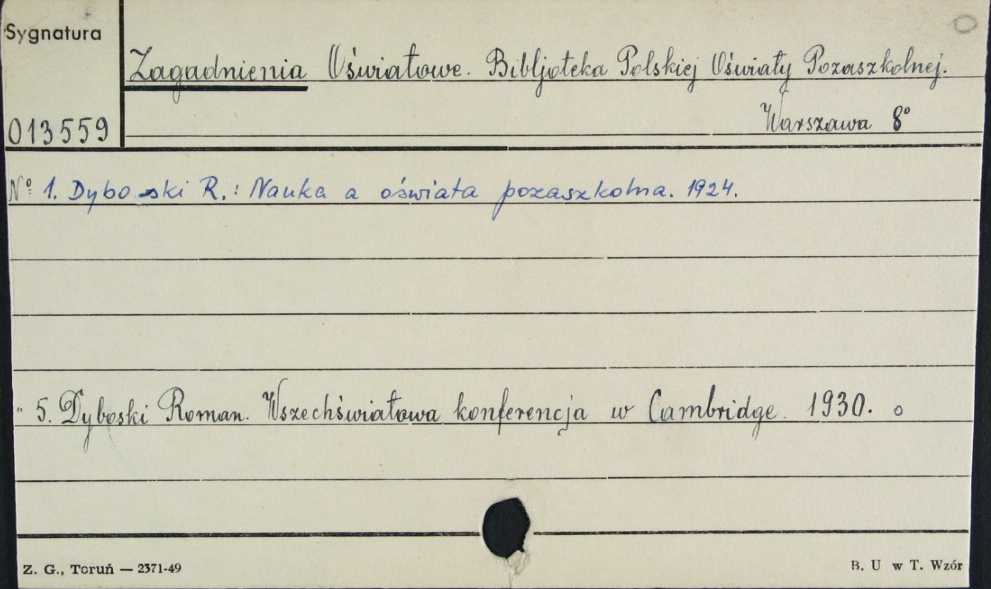 Sygnatura
Zagadnienia Oświatowe. Bibljoteka Polskiej Oświaty Pozaszkolnej.
013559
Warszawa 8°
Nº 1. Dyboski R.: Nauka a oświata pozaszkolna. 1924.
" 5. Dyboski Roman. Wszechświatowa konferencja w Cambridge. 1930. o
Z. G., Toruń — 2371-49
B. U w T. Wzór